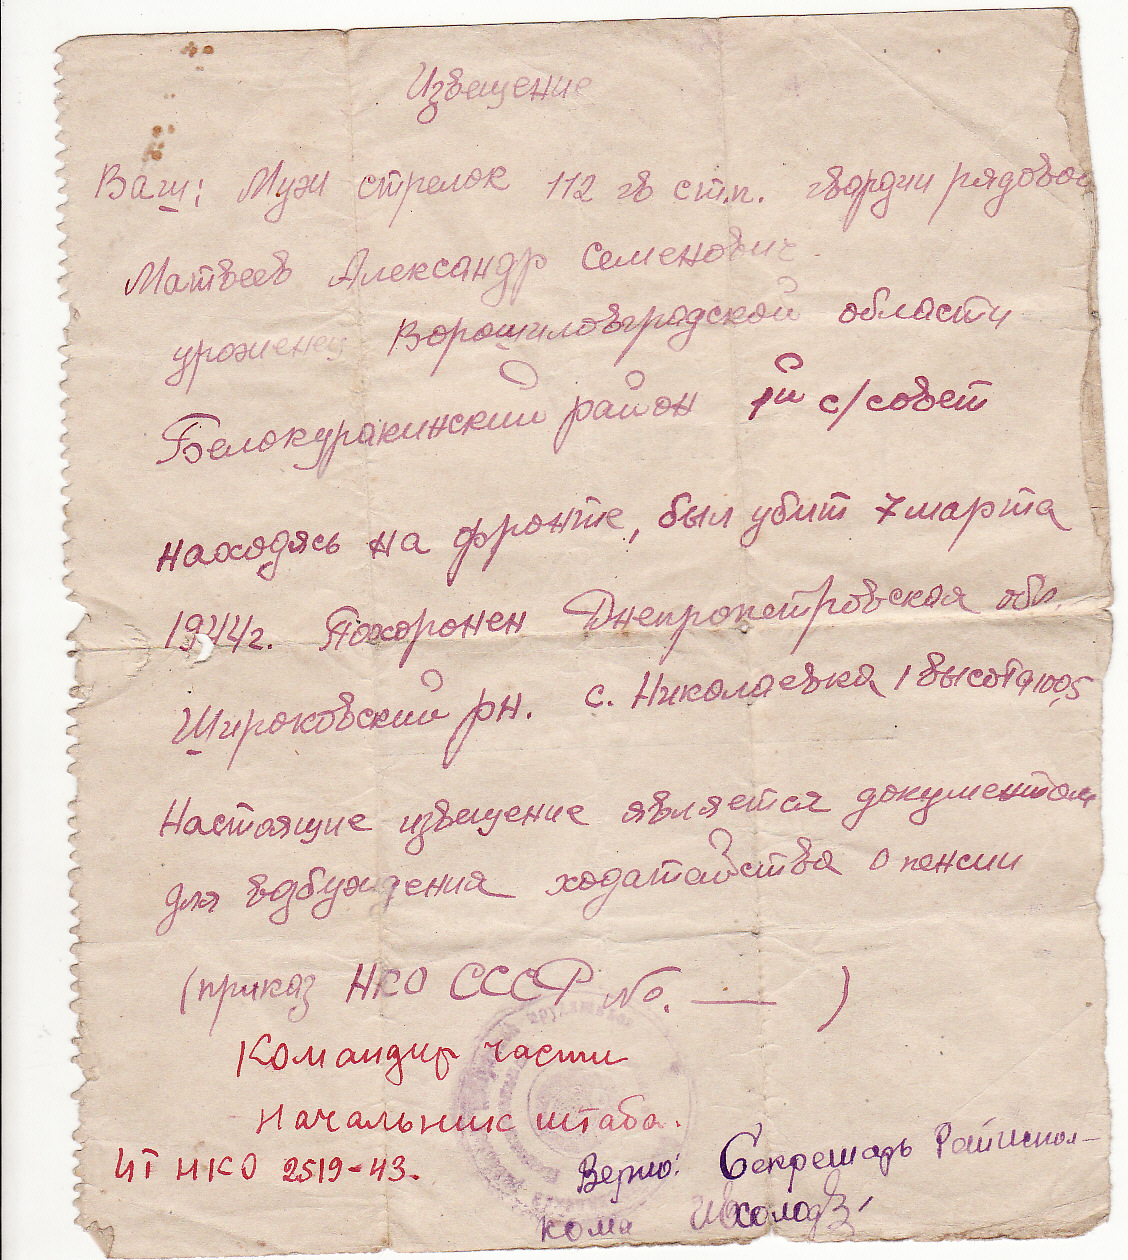 Извещение
Ваш: Муж стрелок 112 гв ст.п. гвардии рядовой
Матвеев Александр Семенович.
уроженец Ворошиловградской области
Белокуракинский район 1й с/совет
находясь на фронте, был убит 7 марта
1944г. Похоронен Днепропетровская обл.
Широковский рн. с. Николаевка 1 высота 100,5
Настоящие извещение является документом
для возбуждения ходатайства о пенсии
(приказ НКО СССР No. ___ )
Командир части
Начальник штаба.
ИТ НКО 2519-43.
Верно: Секретарь Райиспол-
кома